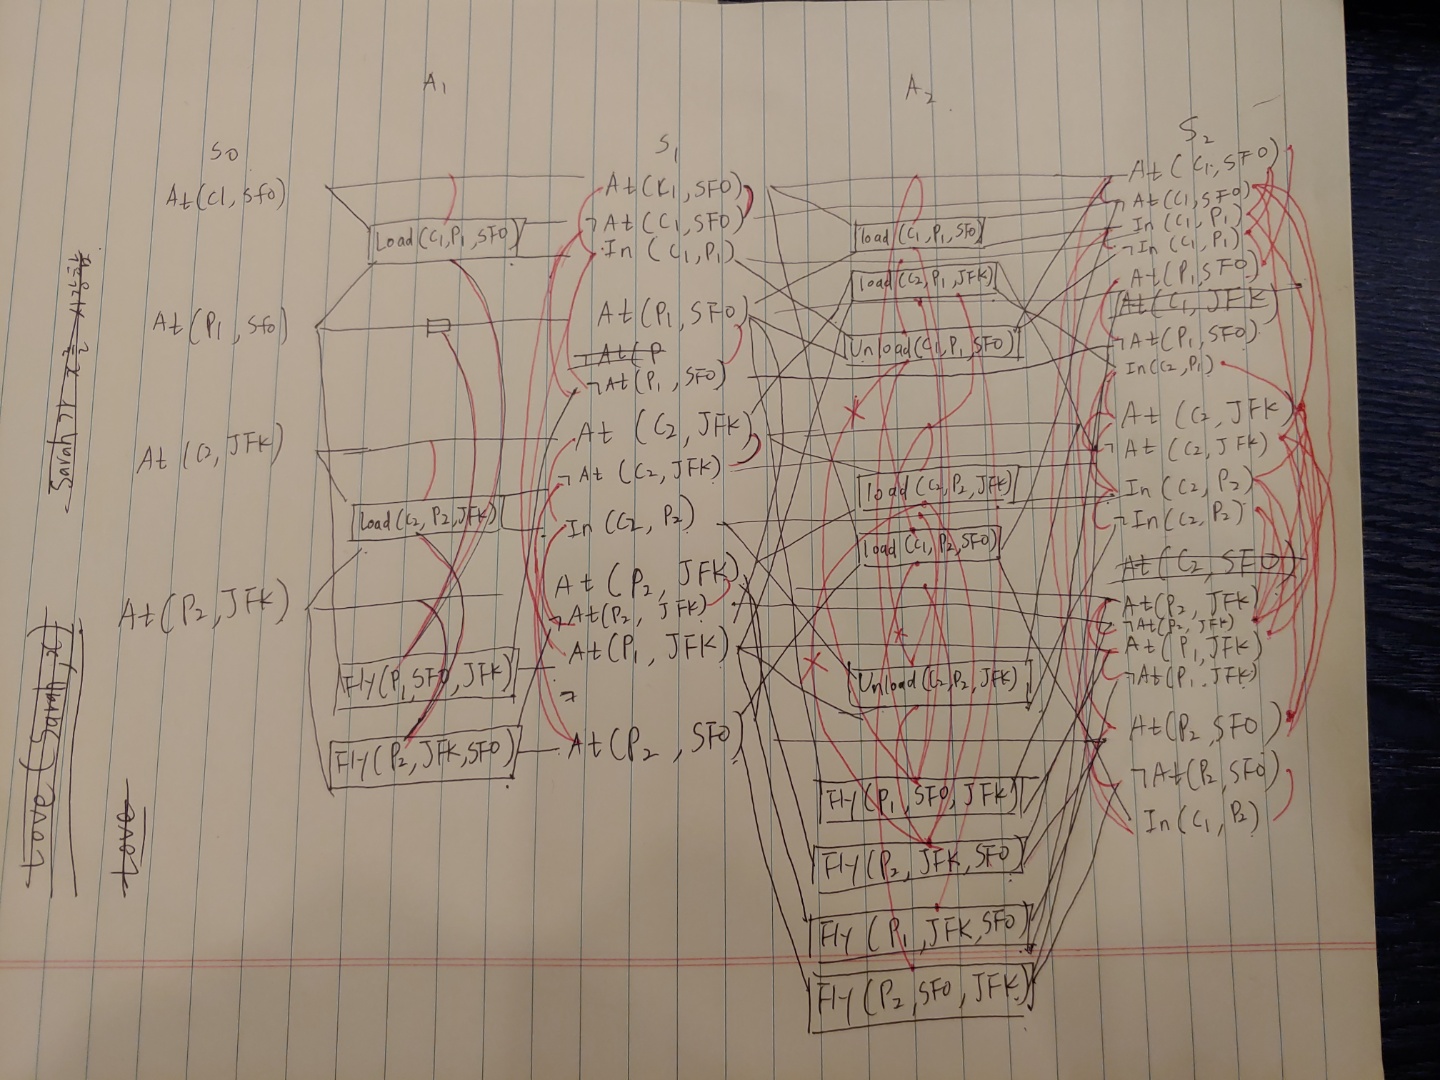 A1
A2
S0
S1
S2
At(C1, sfo)
Load(C1,P1,SFO)
At(P1, sfo)
At(C2, JFK)
Load(C2,P2,JFK)
At(P2, JFK)
Fly(P1, SFO, JFK)
Fly(P2, JFK, SFO)
At(C1, SFO)
¬At(C1, SFO)
In(C1, P1)
At(P1, SFO)
¬At(P
¬At(P1, SFO)
At(C2, JFK)
¬At(C2, JFK)
In(C2, P2)
At(P2, JFK)
¬At(P2, JFK)
At(P1, JFK)
¬
At(P2, SFO)
load(C1,P1,SFO)
load(C2,P1,JFK)
Unload(C1,P1,SFO)
load(C2,P2,JFK)
load(C1,P2,SFO)
Unload(C2,P2,JFK)
Fly(P1, SFO, JFK)
Fly(P2, JFK, SFO)
Fly(P1, JFK, SFO)
Fly(P2, SFO, JFK)
At(C1, SFO)
¬At(C1, SFO)
In(C1, P1)
¬In(C1, P1)
At(P1, SFO)
At(C1, JFK)
¬At(P1, SFO)
In(C2, P1)
At(C2, JFK)
¬At(C2, JFK)
In(C2, P2)
¬In(C2, P2)
At(C2, SFO)
At(P2, JFK)
¬At(P2, JFK)
At(P1, JFK)
¬At(P1, JFK)
At(P2, SFO)
¬At(P2, SFO)
In(C1, P2)
Love(Sarah, x)